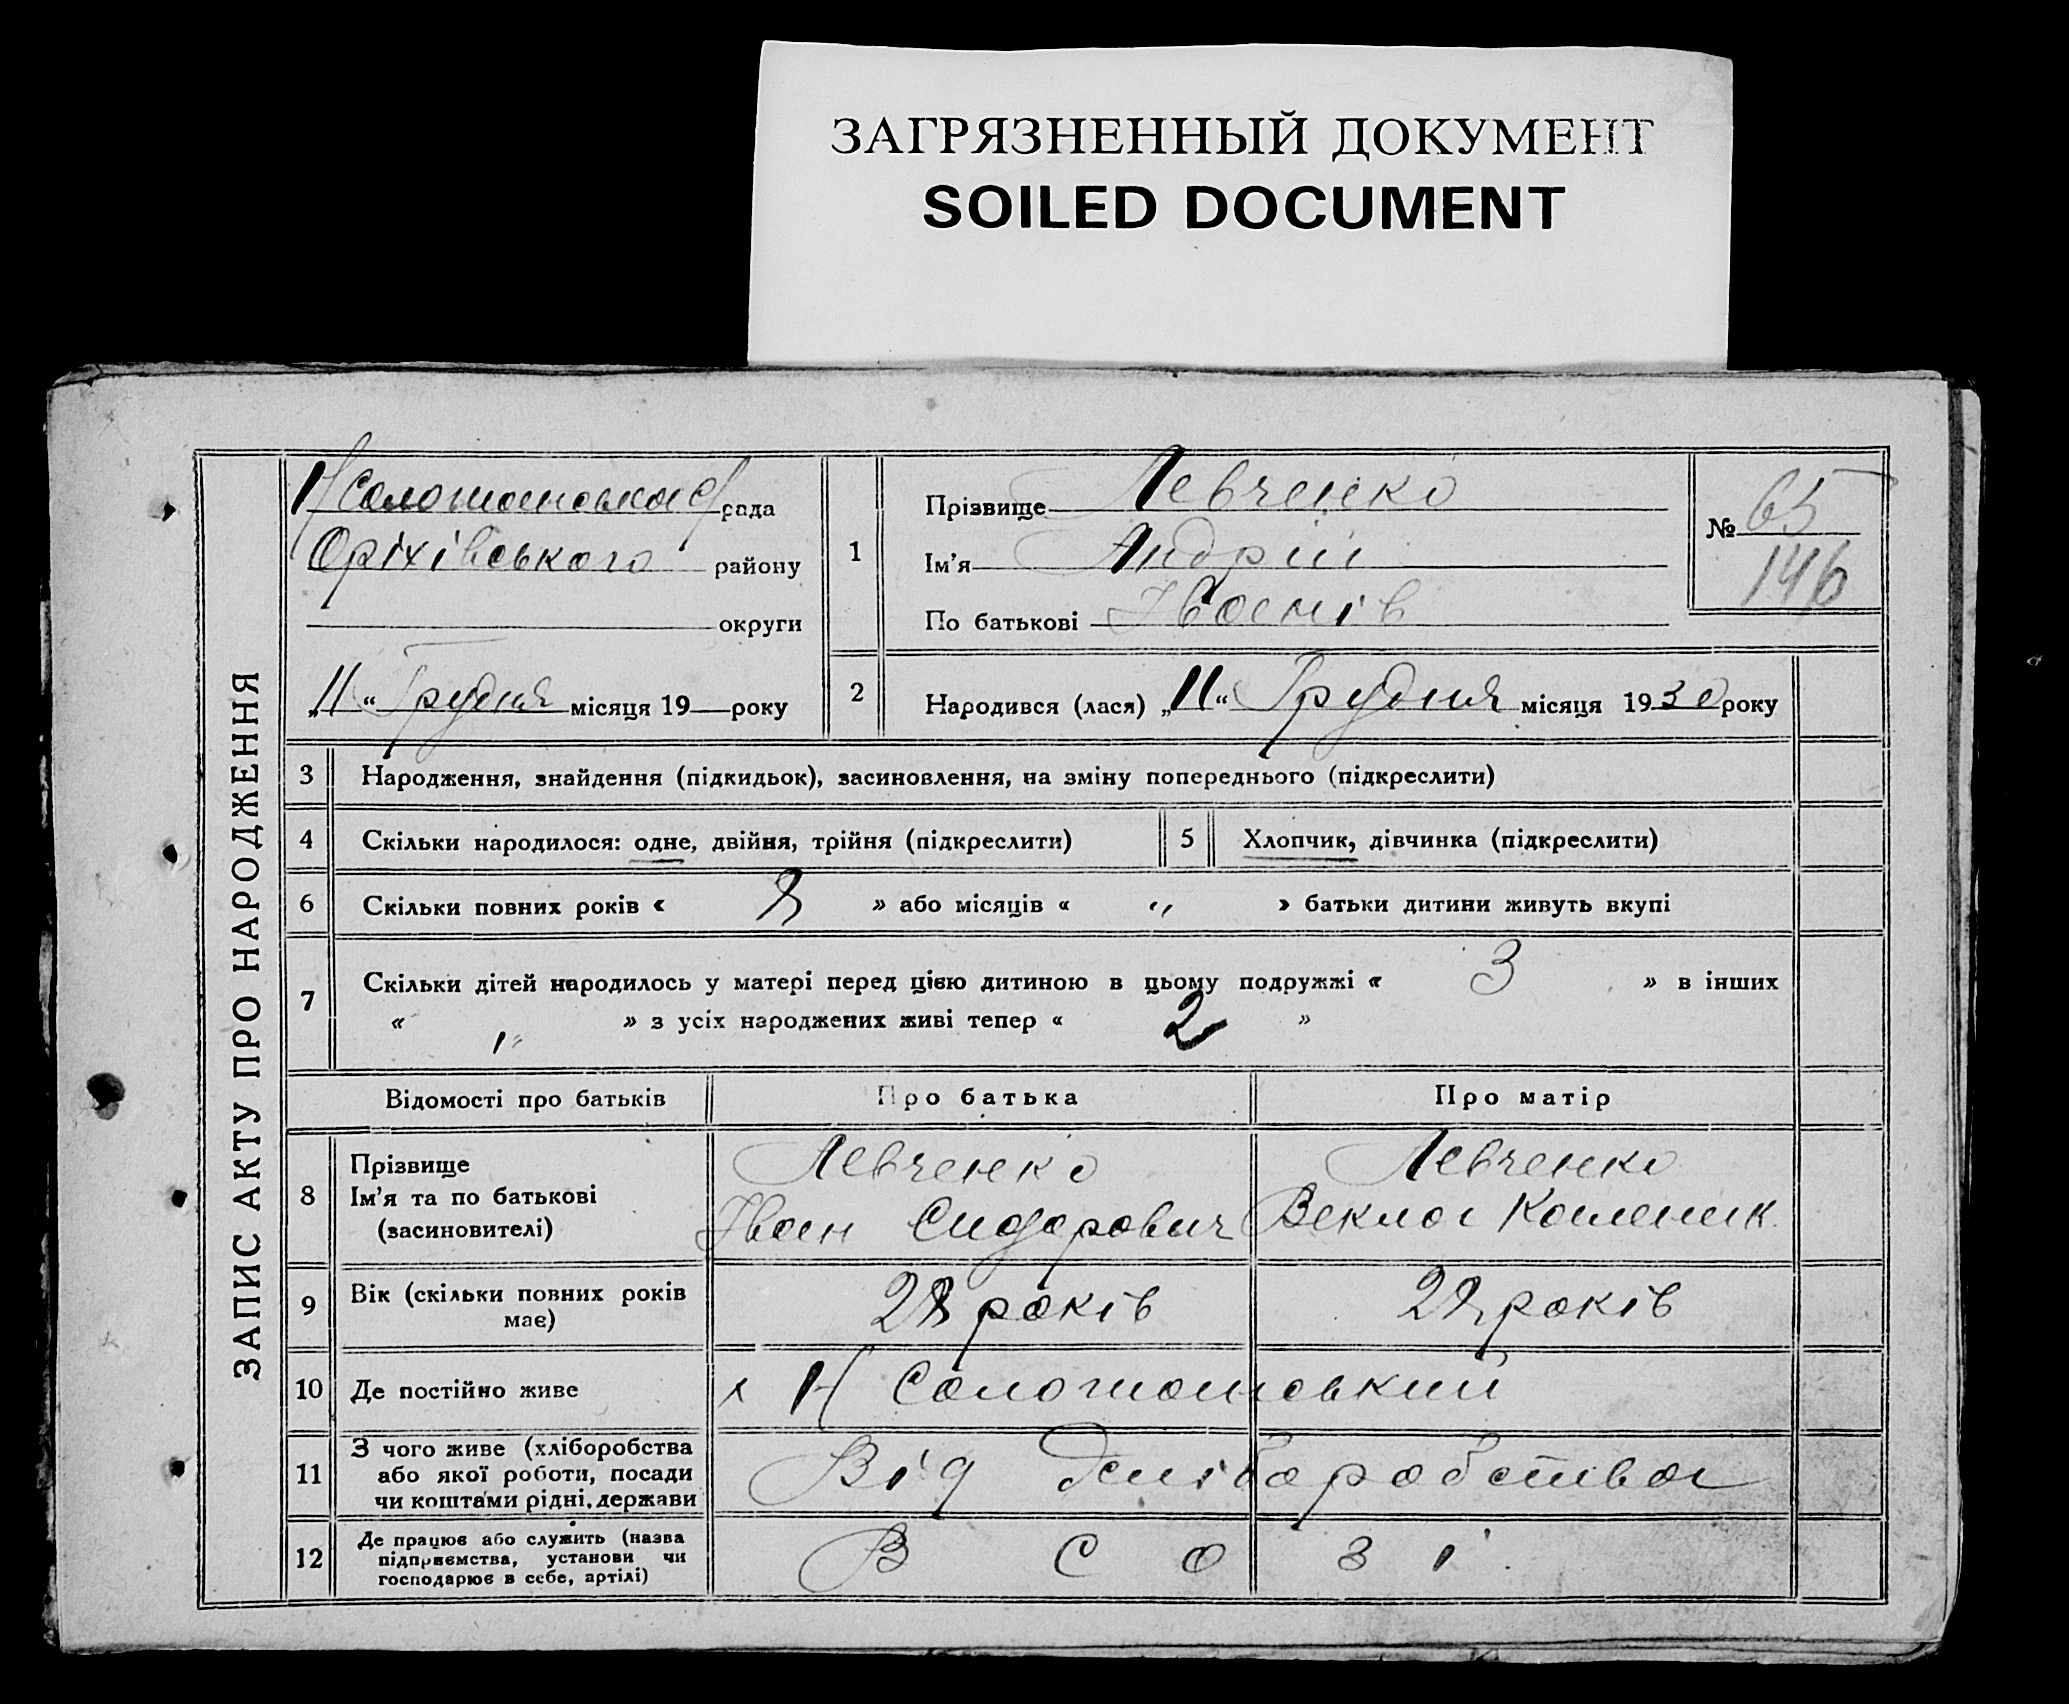 ЗАГРЯЗНЕННЫЙ ДОКУМЕНТ
SOILED DOCUMENT
ЗАПИС АКТУ ПРО НАРОДЖЕННЯ
рада
Оріхівського району
округи
„11“ Грудня місяця 19 року
1
Прізвище Левченко
Ім'я Андрій
По батькові Іванів
№ 65
146
2 Народився (лася) „11“ Грудня місяця 1930 року
3 Народження, знайдення (підкидьок), засиновлення, на зміну попереднього (підкреслити)
4 Скільки народилося: одне, двійня, трійня (підкреслити) 5 Хлопчик, дівчинка (підкреслити)
6 Скільки повних років « 8 » або місяців « „ » батьки дитини живуть вкупі
7 Скільки дітей народилось у матері перед цією дитиною в цьому подружжі « 3 » в інших
« „ » з усіх народжених живі тепер « 2 »
Відомості про батьків Про батька Про матір
8 Прізвище
Ім'я та по батькові
(засиновителі)
Левченко
Іван Сидорович
Левченко
Векла Каленик
9 Вік (скільки повних років має) 28 років 28 років
10 Де постійно живе х Н Солошанський
11 З чого живе (хліборобства
або якої роботи, посади
чи коштами рідні, держави
Від хліборобства
12 Де працює або служить (назва
підприємства, установи чи
господарює в себе, артілі)
В Созі